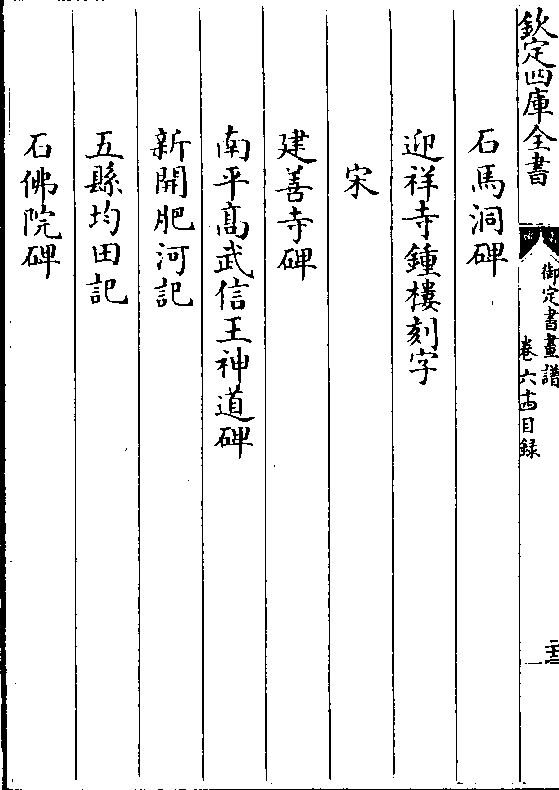 欽定四庫全書
御定書畫譜
卷六十四目録
石馬洞碑
迎祥寺鍾樓刻字
宋
建善寺碑
南平髙武信王神道碑
新開肥河記
五縣均田記
石佛院碑